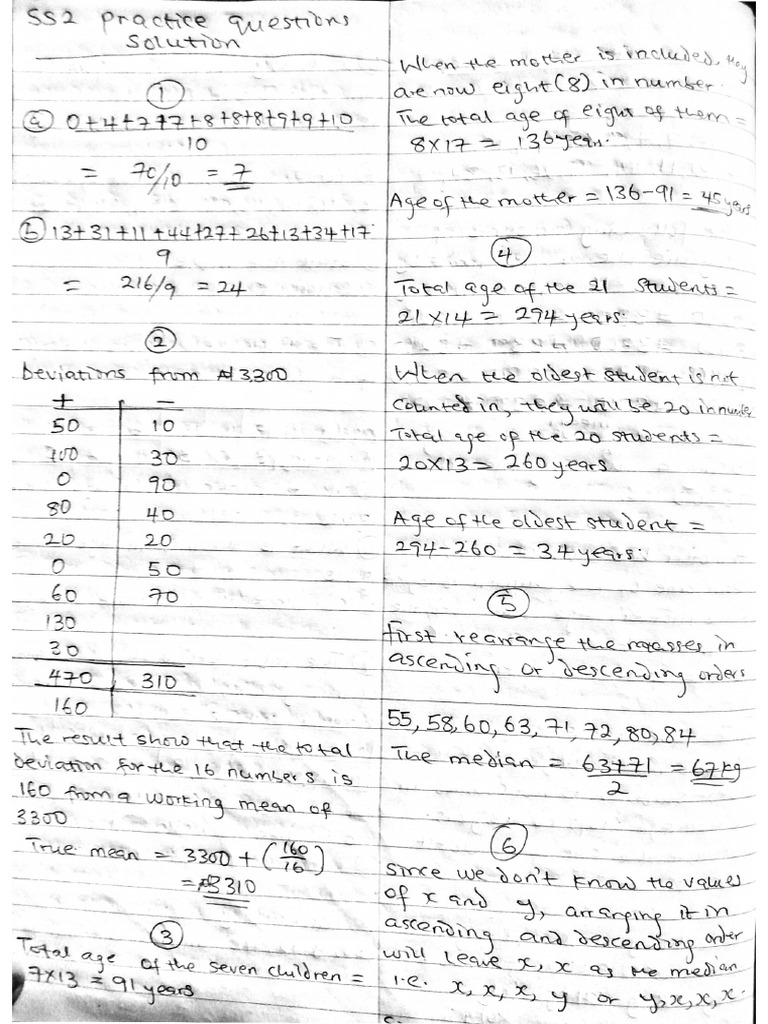 SS2 practice questions
solution
①
ⓐ 0+4+7+7+8+8+8+9+9+10
10
= 70/10 = 7
ⓑ 13+31+11+44+27+26+13+34+17
9
= 216/9 = 24
②
Deviations from ₦3,300
+ | -
50 | 10
100 | 30
0 | 90
80 | 40
20 | 20
0 | 50
60 | 70
130
30
470 | 310
160
The result show that the total
deviation for the 16 numbers is
160 from a working mean of
3300
True mean = 3300 + (160/16)
= ₦3310
③
Total age of the seven children =
7x13 = 91 years
When the mother is included, they
are now eight (8) in number.
The total age of eight of them =
8x17 = 136 years.
Age of the mother = 136-91 = 45 years
④
Total age of the 21 students =
21x14 = 294 years.
When the oldest student is not
counted in, they will be 20 in number
Total age of the 20 students =
20x13 = 260 years
Age of the oldest student =
294-260 = 34 years.
⑤
First rearrange the masses in
ascending or descending orders
55, 58, 60, 63, 71, 72, 80, 84
The median = 63+71 = 67kg
2
⑥
Since we don't know the values
of x and y, arranging it in
ascending and descending order
will leave x, x as the median
i.e. x, x, x, y or y, x, x, x.